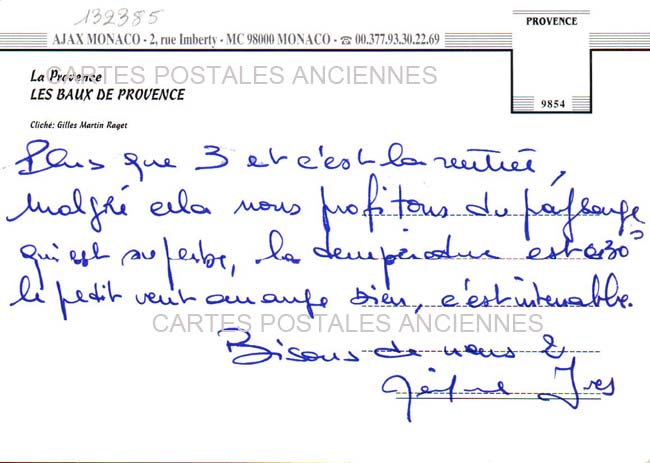 132385
PROVENCE
AJAX MONACO - 2, rue Imberty - MC 98000 MONACO - ☎ 00.377.93.30.22.69
La Provence
CARTES POSTALES ANCIENNES
LES BAUX DE PROVENCE
9854
Cliché: Gilles Martin Raget
Plus que 3 et c'est la rentrée,
malgré cela nous profitons du paysage
qui est superbe, la température est à 30°
le petit vent arrange bien, c'est intenable.
CARTES POSTALES ANCIENNES
Bisous de nous 2
Yves